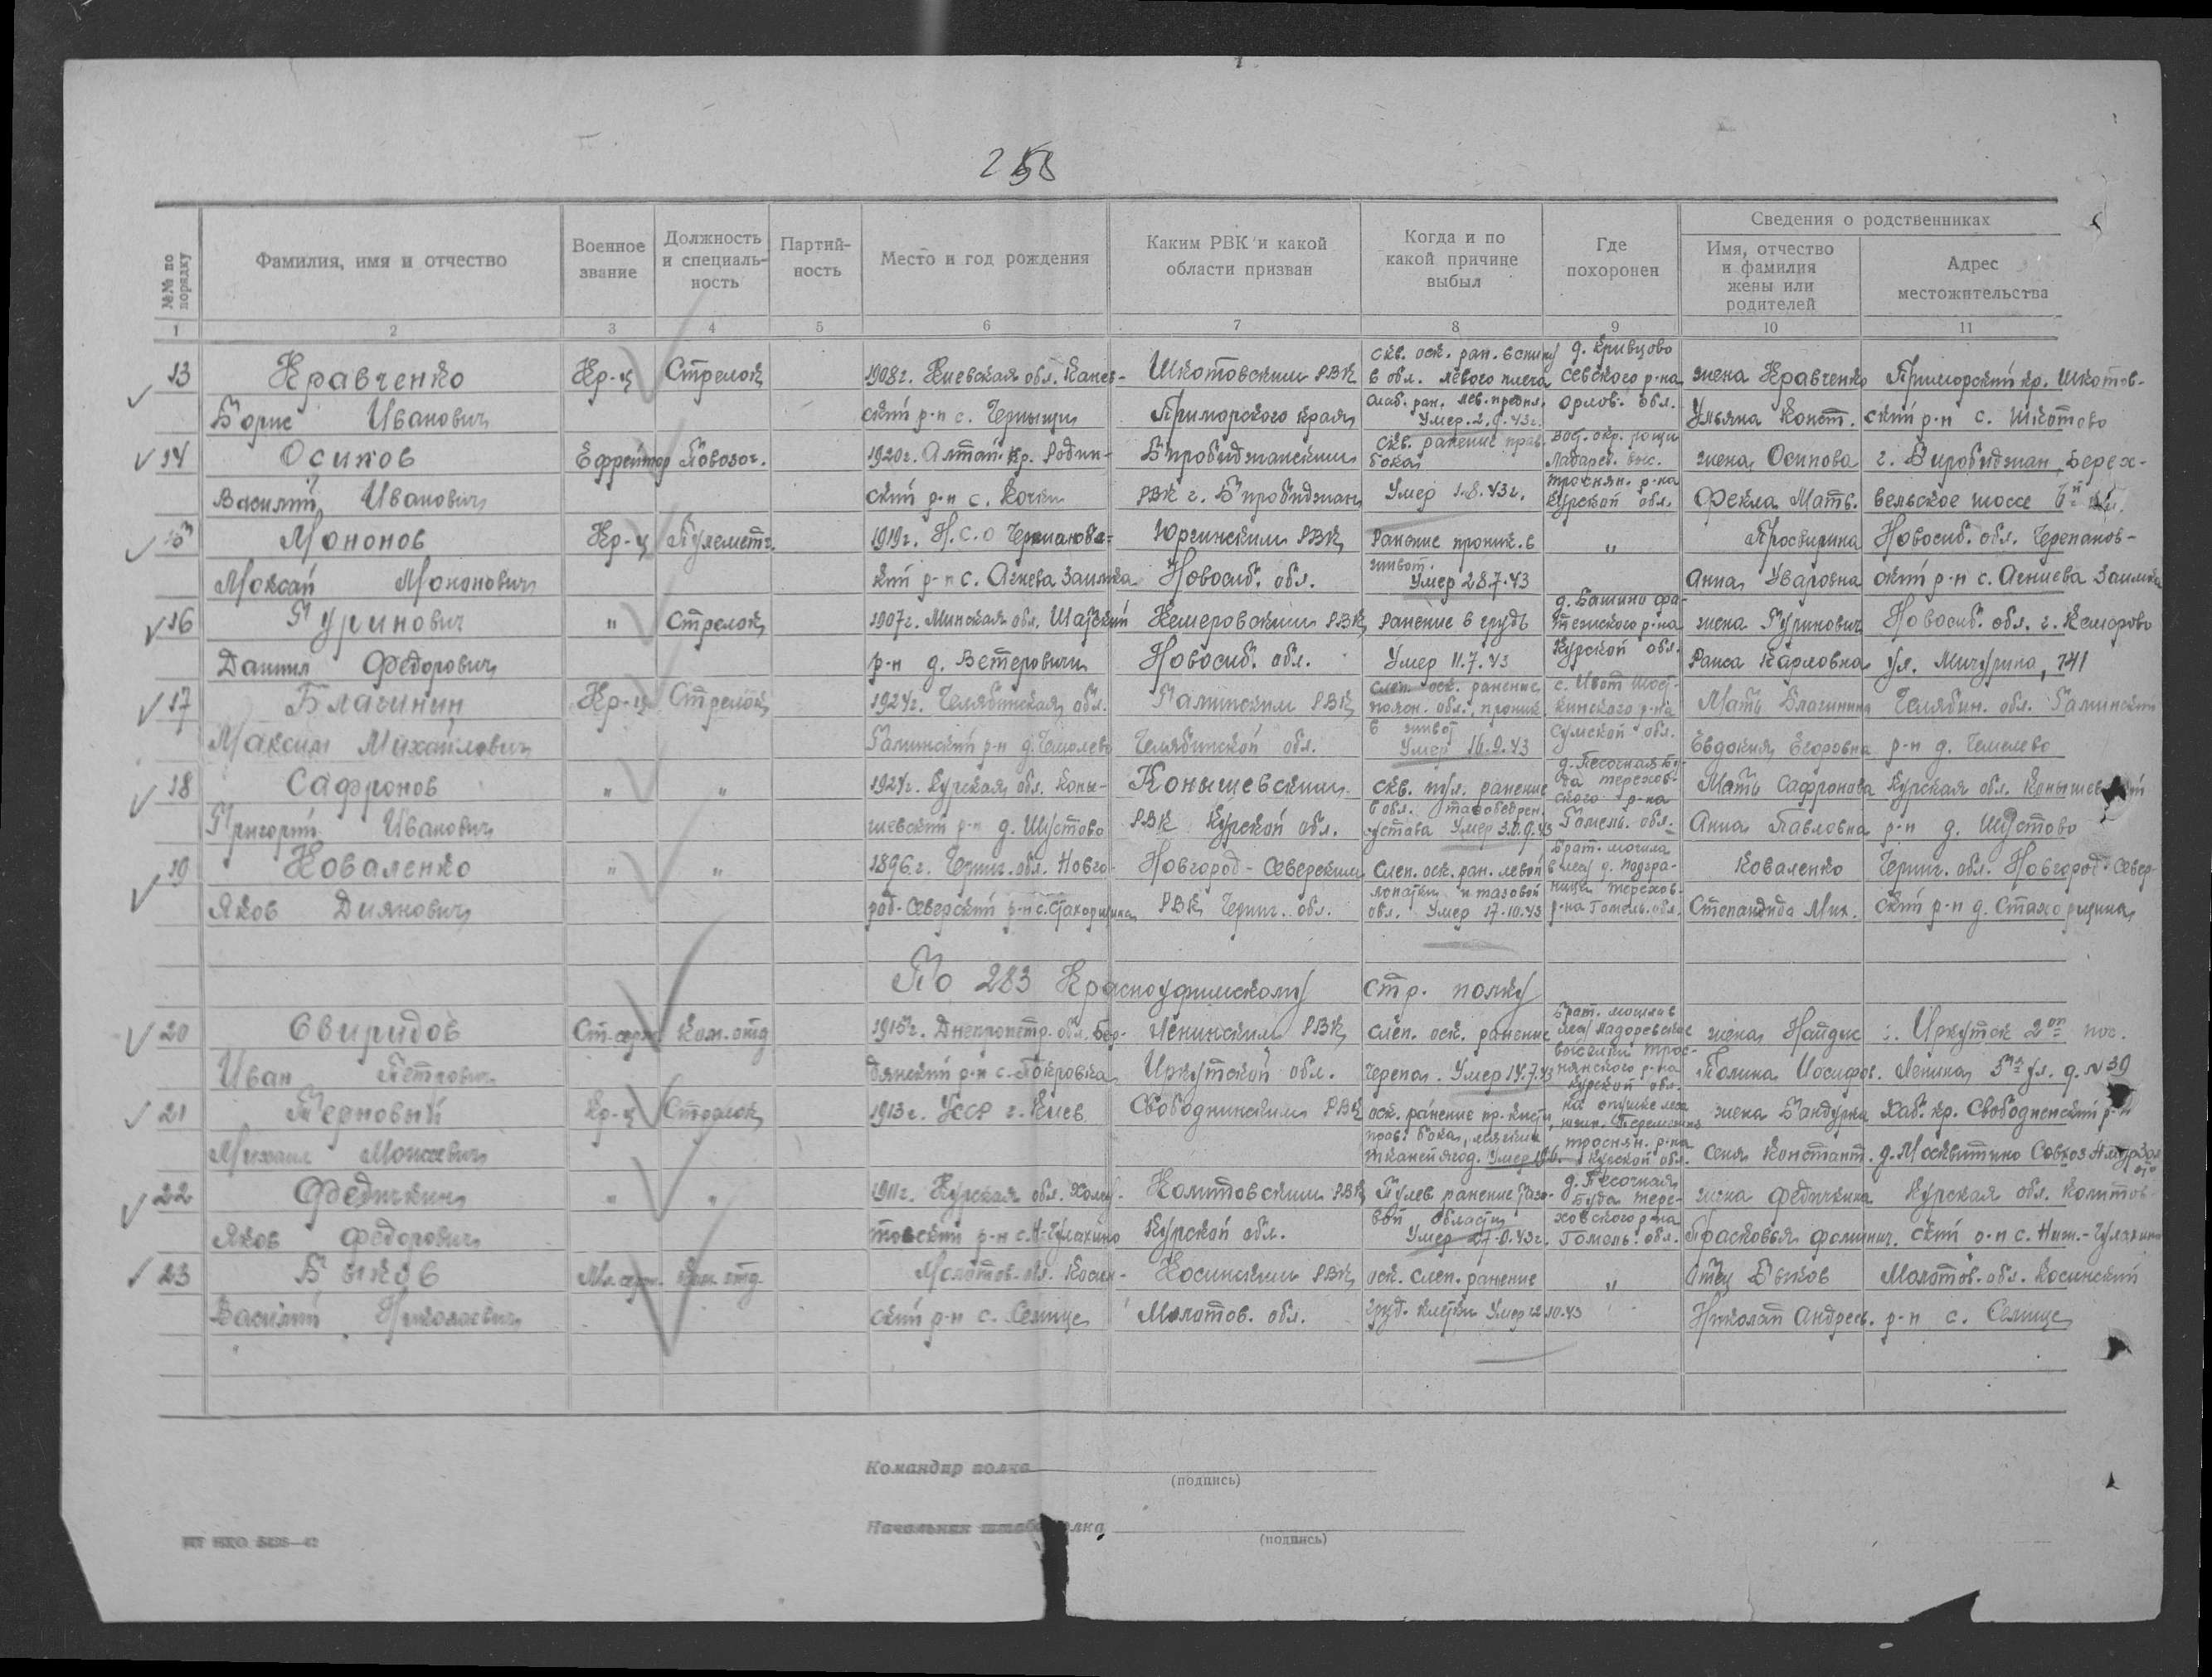 258
№№ по порядку
Фамилия, имя и отчество
Военное звание
Должность и специаль-ность
Партий-ность
Место и год рождения
Каким РВК и какой области призван
Когда и по какой причине выбыл
Где похоронен
Сведения о родственниках
Имя, отчество и фамилия жены или родителей
Адрес местожительства
1 2 3 4 5 6 7 8 9 10 11
13 Кравченко Кр-ц Стрелок 1908г. Киевская обл. Канев- Шкотовским РВК скв. оск. ран. в спину д. Кривцово жена Кравченко Приморский кр. Шкотов-
в обл. левого плеча Севского р-на
Борис Иванович ский р-н с. Приморского края слаб. ран. лев. предпл. Орлов. обл. Ульяна Конст. ский р-н с. Шкотово
Умер 2.9.43г.
14 Осипов Ефрейтор Повозоч. 1920г. Алтай. кр. Родин- Биробиджанским скв. ранение прав. вост. окр. рощи жена Осипова г. Биробиджан Берех-
бока
Василий Иванович ский р-н с. Кочки РВК г. Биробиджан Умер 1.8.43г. троснян. р-на Фекла Матв. вельское шоссе
Курской обл.
15 Мононов Кр-ц Пулеметч. 1919г. Н.С.О Юргинским РВК Ранение проник. в " Просвирина Новосиб. обл. Черепанов-
живот.
Моксай Мононович кий р-н с. Агнева Заимка Новосиб. обл. Умер 28.7.43 Анна Уваровна ский р-н с. Агниева Заимка
16 Гуринович " Стрелок 1907г. Минская обл. Шатский Кемеровским РВК ранение в грудь д. Башино Фа- жена Гуринович Новосиб. обл. г. Кемерово
тежского р-на
Даниил Федорович р-н д. Ветеровичи Новосиб. обл. Умер 11.7.43 Курской обл. Раиса Карловна ул. Мичурина, 141
17 Благинин Кр-ц Стрелок 1924г. Челябинская обл. Галкинским РВК слеп. оск. ранение с. Ивот Шост- Мать Благинина Челябин. обл. Галкинский
поясн. обл., проник. кинского р-на
Максим Михайлович Галкинский р-н д. Чемолево Челябинской обл. в живот Сумской обл. Евдокия Егоровна р-н д. Чемелево
Умер 16.9.43
18 Сафронов " " 1924г. Курская обл. Коны- Конышевским скв. пул. ранение д. Песочная Бу- Мать Сафронова Курская обл. Конышевский
да Терехов-
Григорий Иванович шевский р-н д. Шустово РВК Курской обл. в обл. тазобедрен. ского р-на Анна Павловна р-н д. Шустово
сустава Умер 30.9.43 Гомель. обл.
19 Коваленко " " 1896г. Черниг. обл. Новго- Новгород-Северским Слеп. оск. ран. левой Брат. могила Коваленко Черниг. обл. Новгород-Север-
в лесу д. Подгра-
Яков Диянович род-Северский р-н с. Стахорщина РВК Черниг. обл. лопатки и тазовой ница Терехов. Степанида Мих. ский р-н д. Стахорщина
обл. Умер 17.10.43 р-на Гомель. обл.
По 283 Красноуфимскому стр. полку
20 Свиридов Ст. серж Ком. отд 1915г. Днепропетр. обл. Бер- Ленинским РВК Слеп. оск. ранение Брат. могила в жена Найдис г. Иркутск 2ое пос.
Иван Петрович дянский р-н с. Покровка Иркутской обл. черепа. Умер 14.7.43 нянского р-на Полина Иосифов. Ленина 3я ул. д. №39
Курской обл.
21 Терновый Кр-ц Стрелок 1913г. УССР г. Киев Свободнинским РВК оск. ранение пр. кисти, на опушке леса жена Бандурка Хаб. кр. Свободненский р-н
Михаил Моисеевич прав. бока, мягких троснян. р-на Сеня Констант. д. Москвитино Совхоз
тканей ягод. Умер Курской обл.
22 Федичкин " " 1911г. Курская обл. РВК Пулев. ранение тазо- д. Песочная жена Федичкина Курская обл.
Буда Тере-
Яков Федорович р-н с. Н-Гулахино Курской обл. вой области ховского р-на Прасковья ский р-н с. Ниж.-Гулахино
Умер Гомель. обл.
23 Быков Мл. серж. Ком. отд. Молотов. обл. Косин- Косинским РВК оск. слеп. ранение " Отец Быков Молотов. обл. Косинский
Василий Николаевич ский р-н с. Селище Молотов. обл. груд. клетки Умер 12.10.43 Николай Андреев. р-н с. Селище
Командир полка
(подпись)
Начальник штаба полка
(подпись)